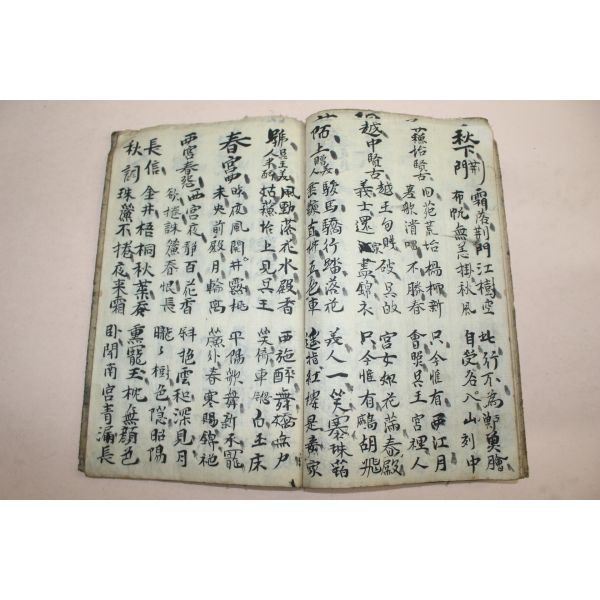 秋下荊門 霜落荊門江樹空 此行不為鱸魚鱠
布帆無恙掛秋風 自愛名山入剡中
蘇台覽古 旧苑荒台楊柳新 只今惟有西江月
菱歌淸唱不勝春 曾照吳王宮裡人
越中覽古 越王勾践破吳 宮女如花滿春殿
義士還家盡錦衣 只今惟有鷓胡飛
陌上贈美人 駿馬驕行踏落花 美人一笑褰珠箔
垂鞭直拂五雲車 遙指紅樓是妾家
號吳王美人半醉 風動落花水殿香 西施醉舞嬌無力
姑蘇台上見吳王 笑倚東窓白玉床
春宮 昨夜風開井露桃 平陽歌舞新承寵
未央前殿月輪高 簾外春寒賜錦袍
西宮春怨 西宮夜靜百花香 斜抱雲和深見月
欲捲珠簾春恨長 朧朧樹色隱昭陽
長信 金井梧桐秋葉黃 熏籠玉枕無顏色
秋詞 珠簾不捲夜来霜 臥聞南宮青漏長